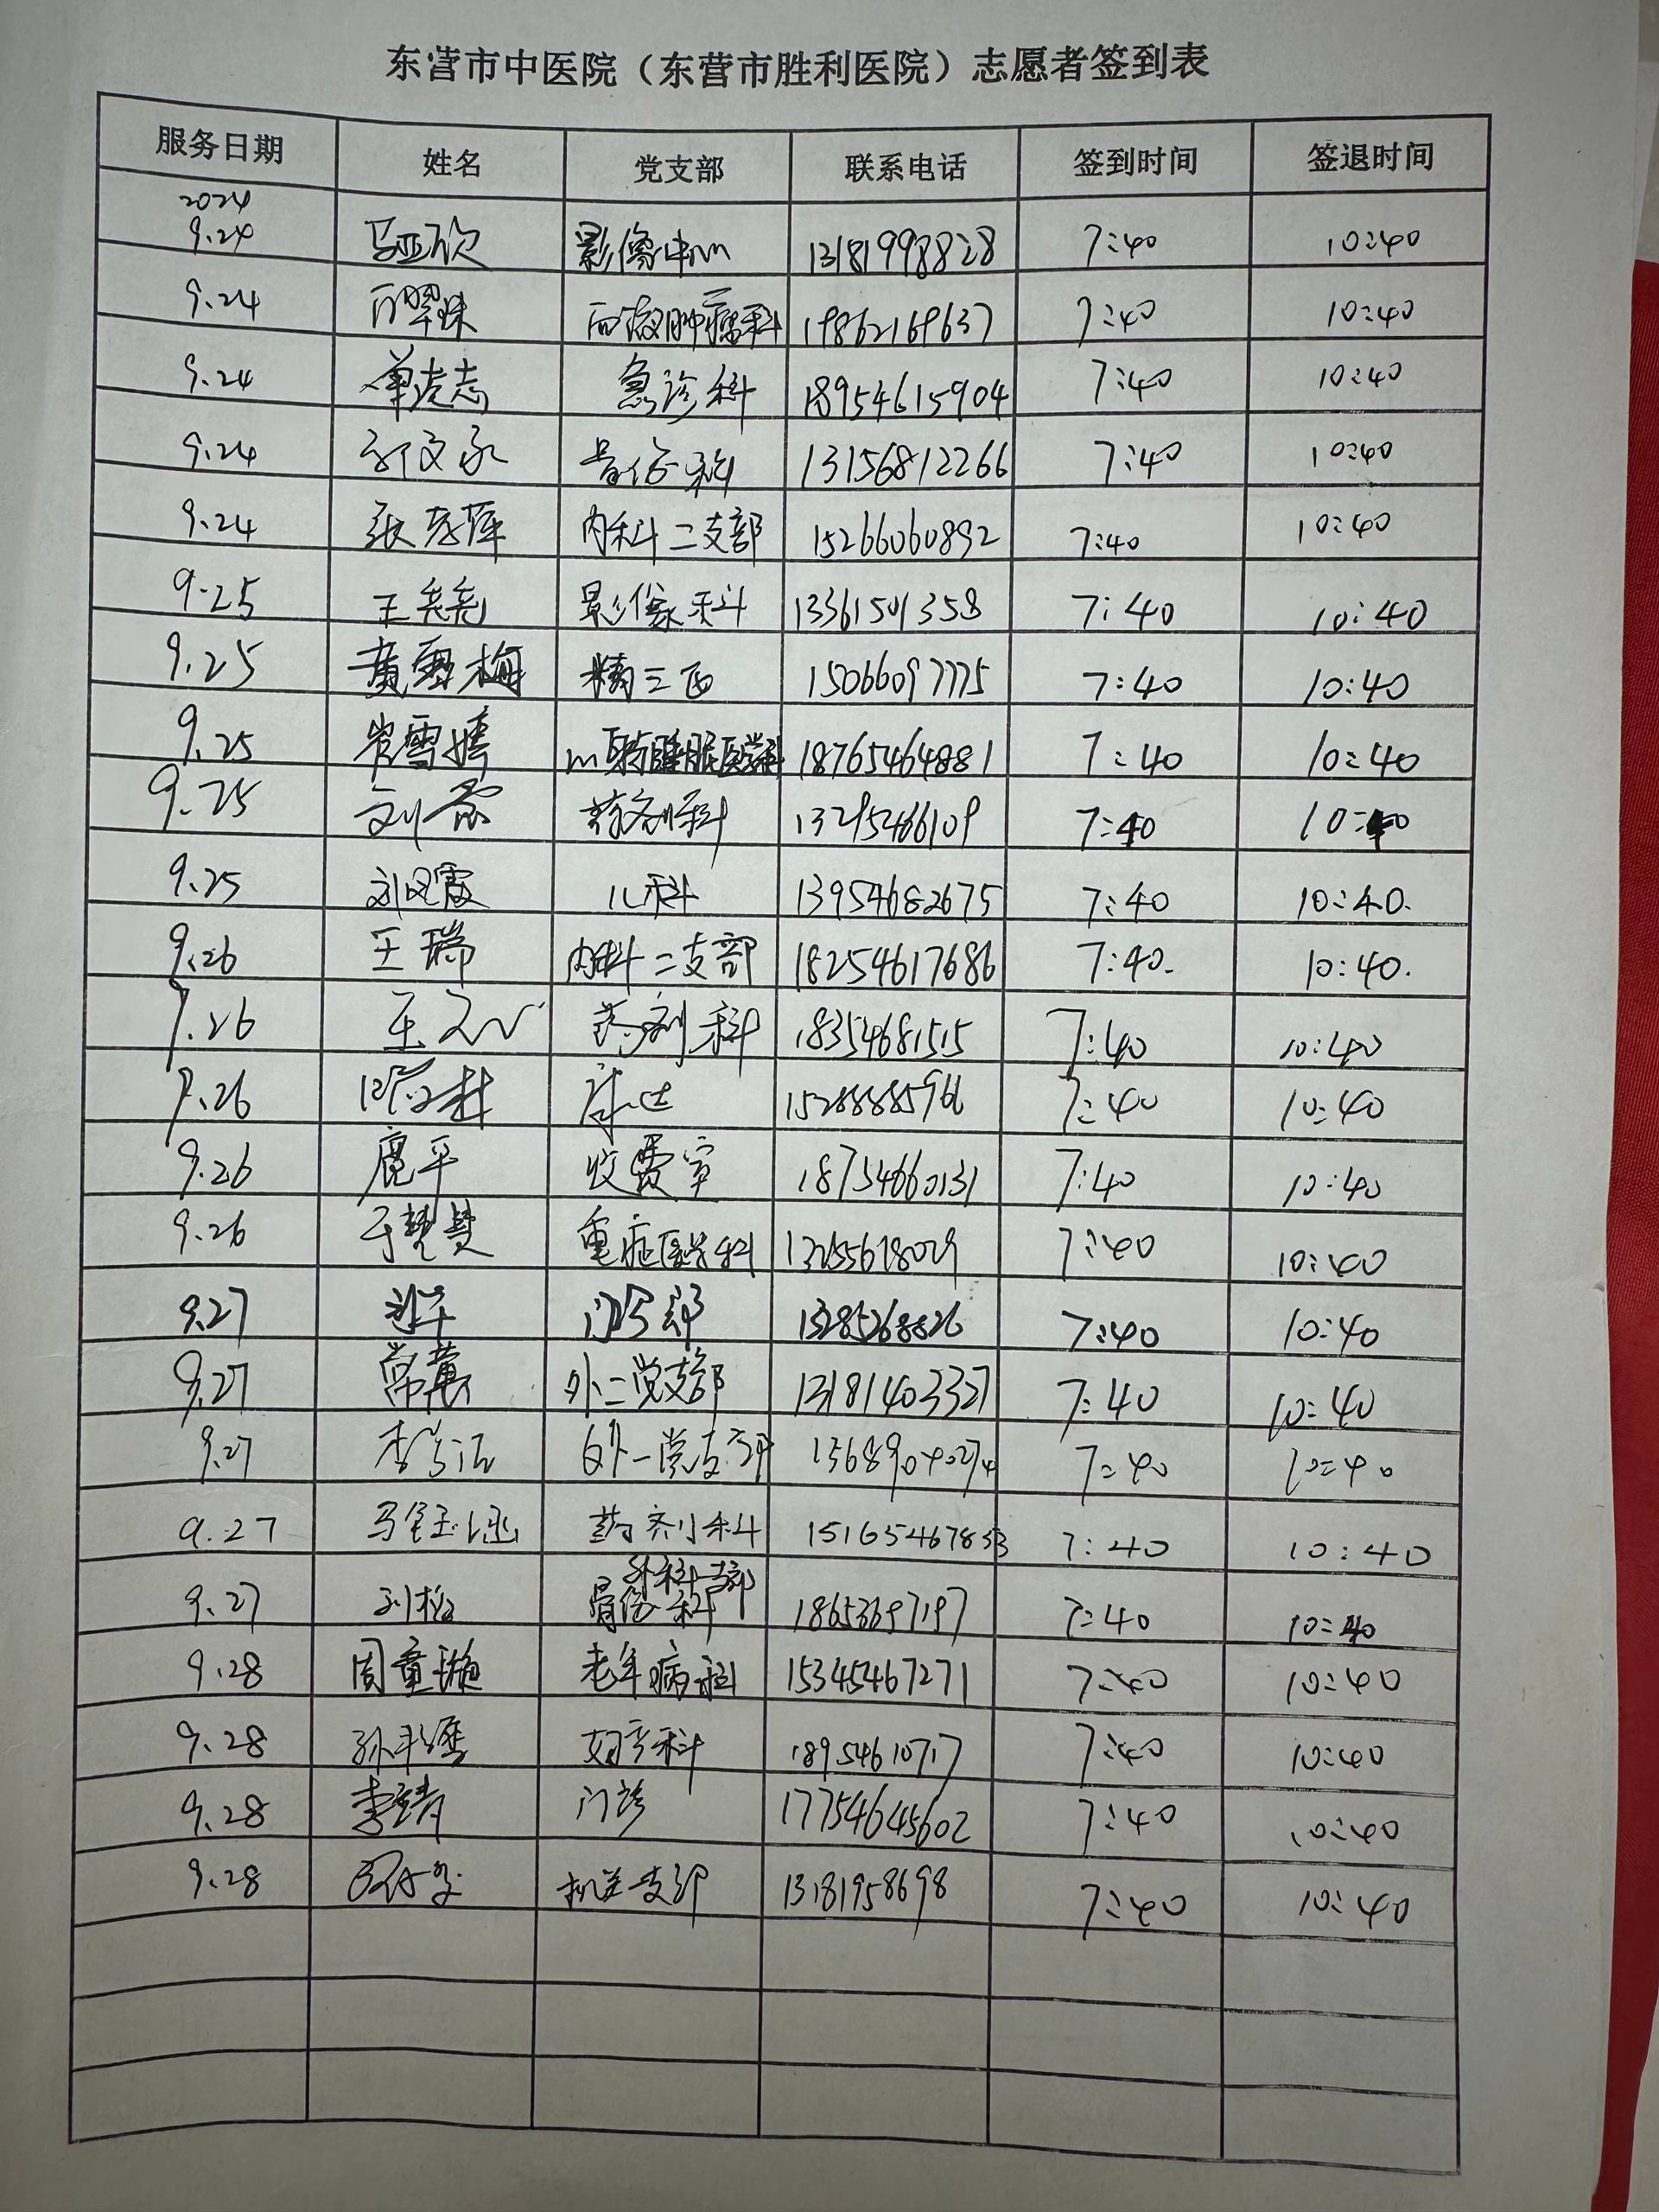 东营市中医院（东营市胜利医院）志愿者签到表
服务日期 姓名 党支部 联系电话 签到时间 签退时间
2024
9.24 马亚欣 影像中心 13181998828 7:40 10:40
9.24 西院肿瘤科 19862169637 7:40 10:40
9.24 单凌志 急诊科 18954615904 7:40 10:40
9.24 骨伤科 13156812266 7:40 10:40
9.24 内科二支部 15266060892 7:40 10:40
9.25 王尧尧 影像科 13361501358 7:40 10:40
9.25 黄雪梅 精三西 15066097775 7:40 10:40
9.25 睡眠医学科 18765464881 7:40 10:40
9.25 药剂科 13295466109 7:40 10:40
9.25 刘风霞 儿科 13954682675 7:40 10:40.
9.26 王瑞 内科二支部 18254617686 7:40. 10:40.
9.26 药剂科 18354681515 7:40 10:40
9.26 7:40 10:40
9.26 鹿平 收费室 18754660131 7:40 10:40
9.26 重症医学科 7:40 10:40
9.27 门诊部 13285268826 7:40 10:40
9.27 常萬 外二党支部 13181403327 7:40 10:40
9.27 外一党支部 7:40 10:40
9.27 药剂科 15165467853 7:40 10:40
外科一支部
9.27 刘松 骨伤科 18653697197 7:40 10:40
9.28 周童璇 老年病科 15345467271 7:40 10:40
9.28 妇产科 18954610717 7:40 10:40
9.28 李靖 门诊 17754645602 7:40 10:40
9.28 机关支部 13181958698 7:40 10:40